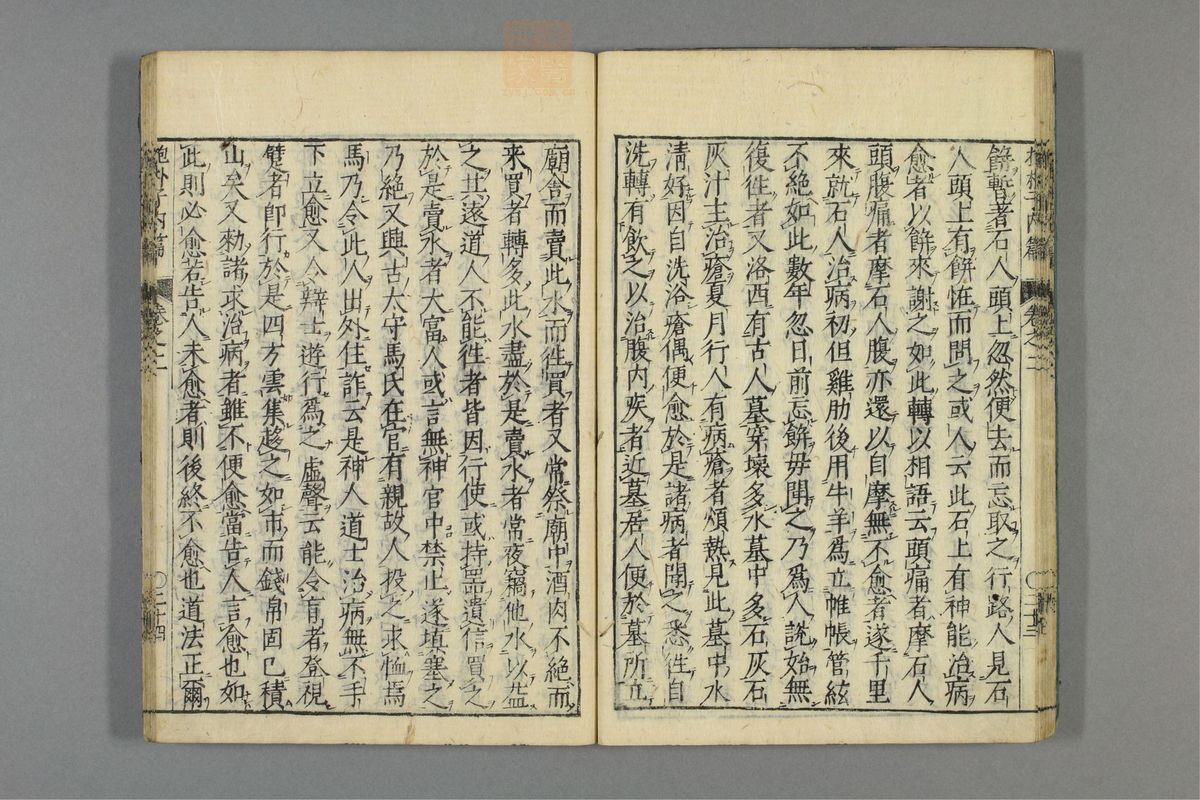 餅暫著石人頭上忽然便去而忘取之行路人見石
人頭上有餅恠而問之或人云此石上有神能治病
愈者以餅來謝之如此轉以相語云頭痛者摩石人
頭腹痛者摩石人腹亦還以自摩無不愈者遂千里
來就石人治病初但雞肋後用牛羊爲立帷帳管絃
不絕如此數年忽日前忘餅毋聞之乃爲人說始無
復徃者又洛西有古人墓穿壞多水墓中多石灰石
灰汁主治瘡夏月行人有病瘡者煩熱見此墓中水
清好因自洗浴瘡偶便愈於是諸病者聞之悉徃自
洗轉有飲之以治腹內疾者近墓居人便於墓所立
抱朴子內篇 卷之二 〇二十三
廟舍而賣此水而徃買者又常祭廟中酒肉不絕而
来買者轉多此水盡於是賣水者常夜竊他水以益
之其遠道人不能徃者皆因行使或持噐遺信買之
於是賣水者大富人或言無神官中禁止遂填塞之
乃絕又興古太守馬氏在官有親故人投之求恤焉
馬乃令此人出外住詐云是神人道士治病無不手
下立愈又令辯士遊行爲之虛聲云能令盲者登視
躄者卽行於是四方雲集趍之如市而錢帛固已積
山矣又勑諸求治病者雖不便愈當告人言愈也如
此則必愈若告人未愈者則後終不愈也道法正爾
抱朴子內篇 卷之二 〇二十四